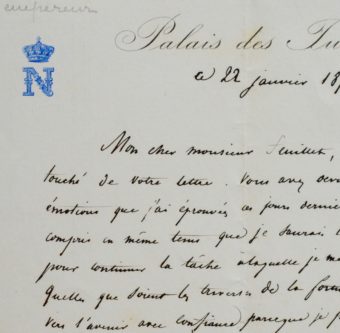 empereur
N
Palais des Tu
ce 22 janvier 18
Mon cher monsieur Feuillet,
touché de votre lettre. Vous avez dev
émotions que j'ai éprouvées ces jours dernie
compris en même tems que je saurais
pour continuer la tâche à laquelle je me
Quelles que soient les traverses de la for
vers l'avenir avec confiance parceque je p